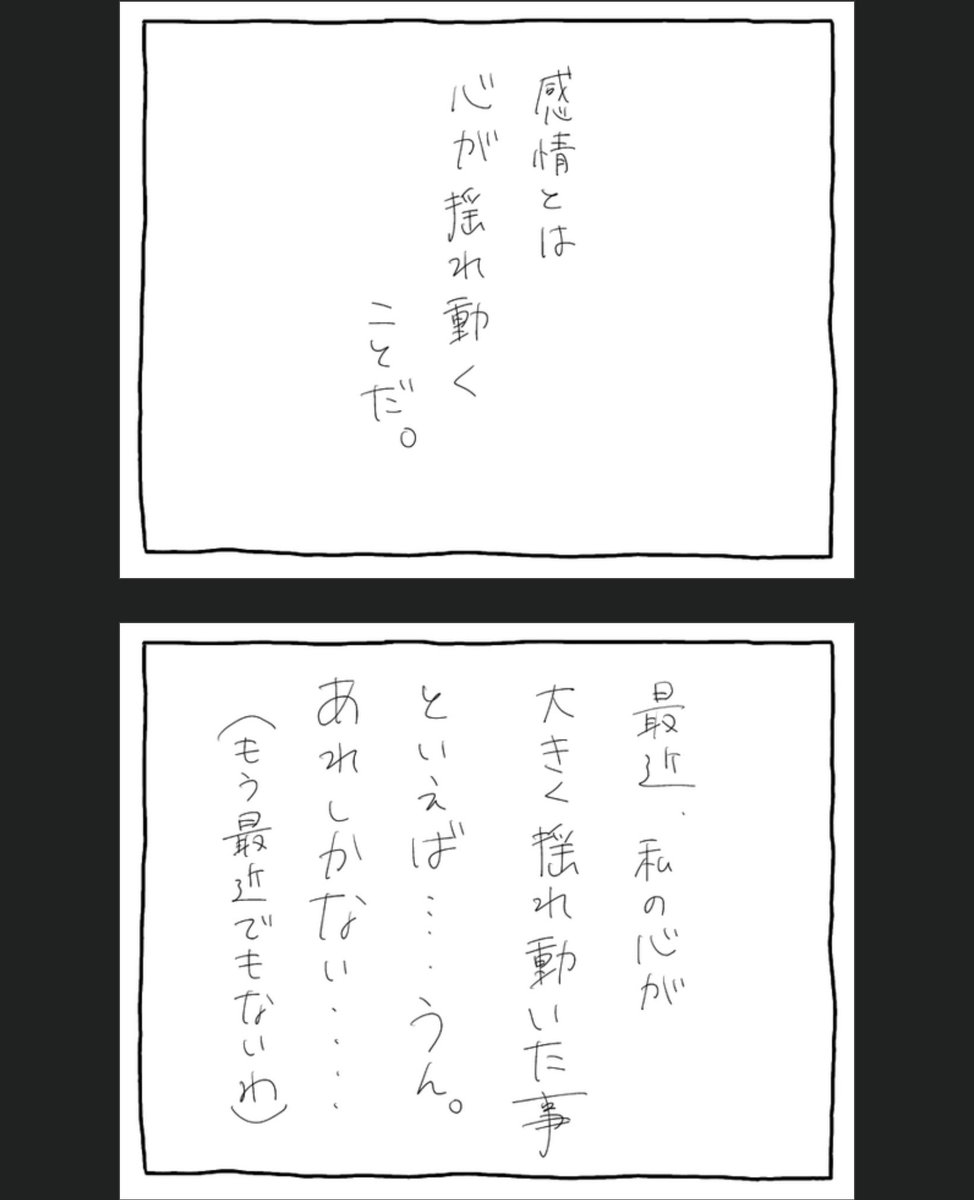 感情とは
心が揺れ動く
ことだ。
最近、私の心が
大きく揺れ動いた事
といえば・・・・うん。
あれしかない・・・・
(もう最近でもないわ)